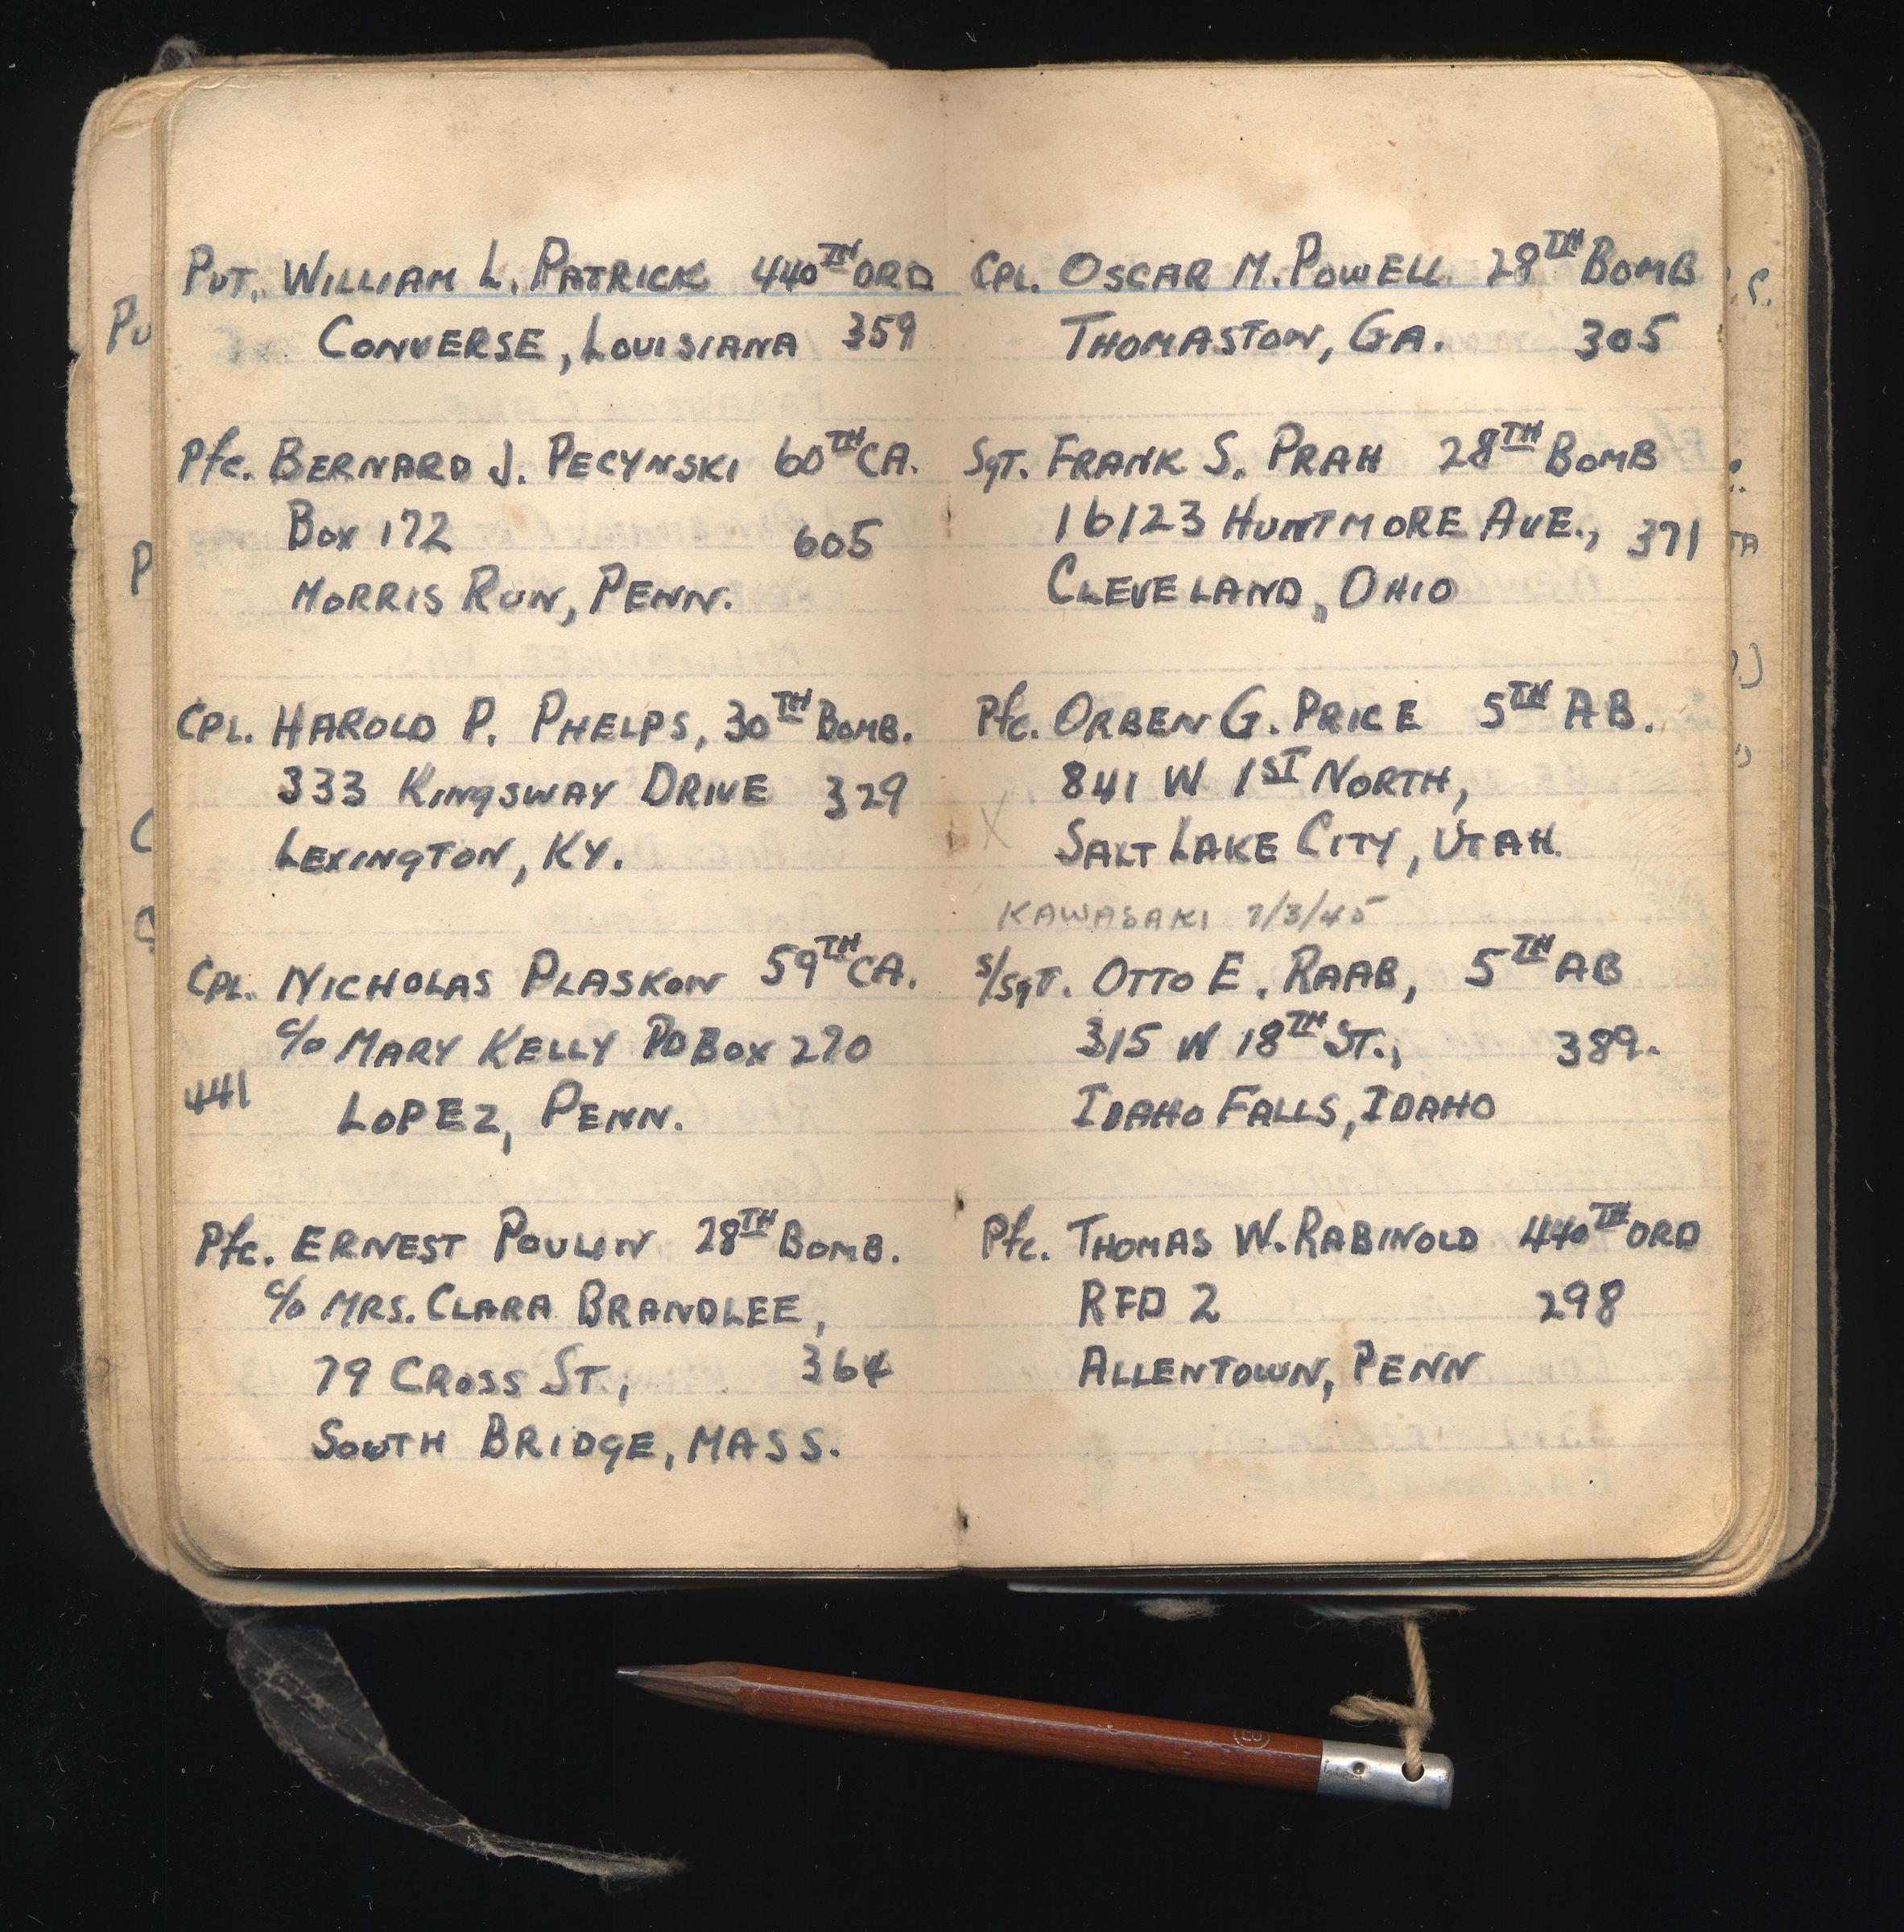 PVT. WILLIAM L. PATRICK 440TH ORD
CONVERSE, LOUISIANA 359
Pfc. BERNARD J. PECYNSKI 60TH CA.
BOX 172 605
MORRIS RUN, PENN.
CPL. HAROLD P. PHELPS, 30TH BOMB.
333 KINGSWAY DRIVE 329
LEXINGTON, KY.
CPL. NICHOLAS PLASKON 59TH CA.
c/o MARY KELLY PO BOX 270
441 LOPEZ, PENN.
Pfc. ERNEST POULIN 28TH BOMB.
c/o MRS. CLARA BRANDLEE,
79 CROSS ST., 364
SOUTH BRIDGE, MASS.
CPL. OSCAR M. POWELL 28TH BOMB
THOMASTON, GA. 305
SGT. FRANK S. PRAH 28TH BOMB
16123 HUNTMORE AVE., 371
CLEVELAND, OHIO
Pfc. ORBEN G. PRICE 5TH AB.
841 W 1ST NORTH,
X SALT LAKE CITY, UTAH.
KAWASAKI 7/3/45
S/SGT. OTTO E. RAAB, 5TH AB
315 W 18TH ST., 389.
IDAHO FALLS, IDAHO
Pfc. THOMAS W. RABINOLD 440TH ORD
RFD 2 298
ALLENTOWN, PENN